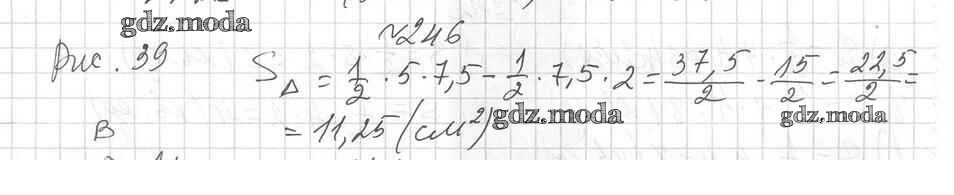 gdz.moda
№246
Рис. 39 S△ = 1/2 · 5 · 7,5 - 1/2 · 7,5 · 2 = 37,5/2 - 15/2 = 22,5/2 =
В = 11,25 (см²) gdz.moda gdz.moda